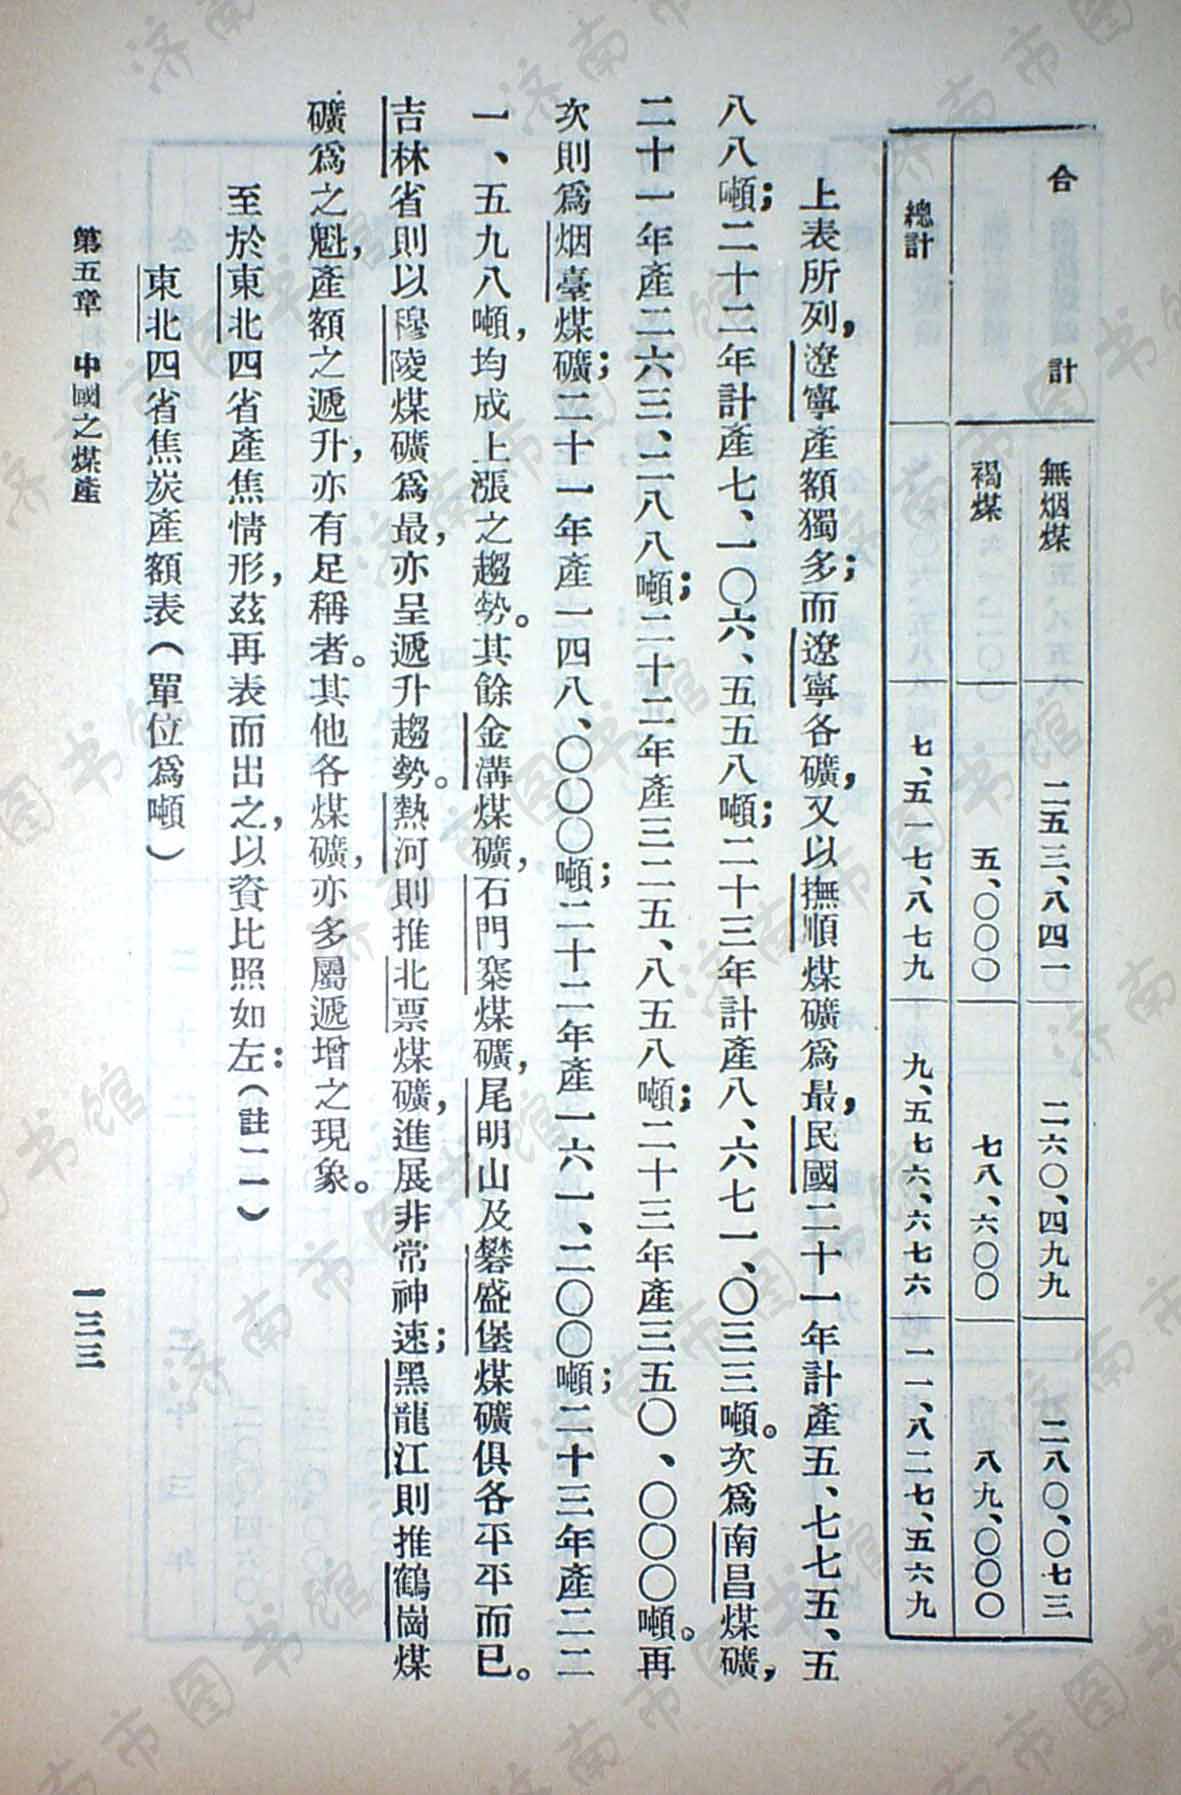 合計
無烟煤 二五三、八四一 二六〇、四九九 二八〇、〇七三
褐煤 五、〇〇〇 七八、六〇〇 八九、〇〇〇
總計 七、五一七、八七九 九、五七六、六七六 一一、八二七、五六九
上表所列，遼寧產額獨多；而遼寧各礦，又以撫順煤礦爲最，民國二十一年計產五、七七五、五
八八噸；二十二年計產七、一〇六、五五八噸；二十三年計產八、六七一、〇三三噸。次爲南昌煤礦，
二十一年產二六三、二八八噸；二十二年產三二五、八五八噸；二十三年產三五〇、〇〇〇噸。再
次則爲烟臺煤礦；二十一年產一四八、〇〇〇噸；二十二年產一六一、二〇〇噸；二十三年產二二
一、五九八噸，均成上漲之趨勢。其餘金溝煤礦，石門寨煤礦，尾明山及礬盛堡煤礦俱各平平而已。
吉林省則以穆陵煤礦爲最，亦呈遞升趨勢。熱河則推北票煤礦，進展非常神速；黑龍江則推鶴崗煤
礦爲之魁，產額之遞升，亦有足稱者。其他各煤礦，亦多屬遞增之現象。
至於東北四省產焦情形，茲再表而出之，以資比照如左：（註二一）
東北四省焦炭產額表（單位爲噸）
第五章 中國之煤產
一三三
济南市图书馆